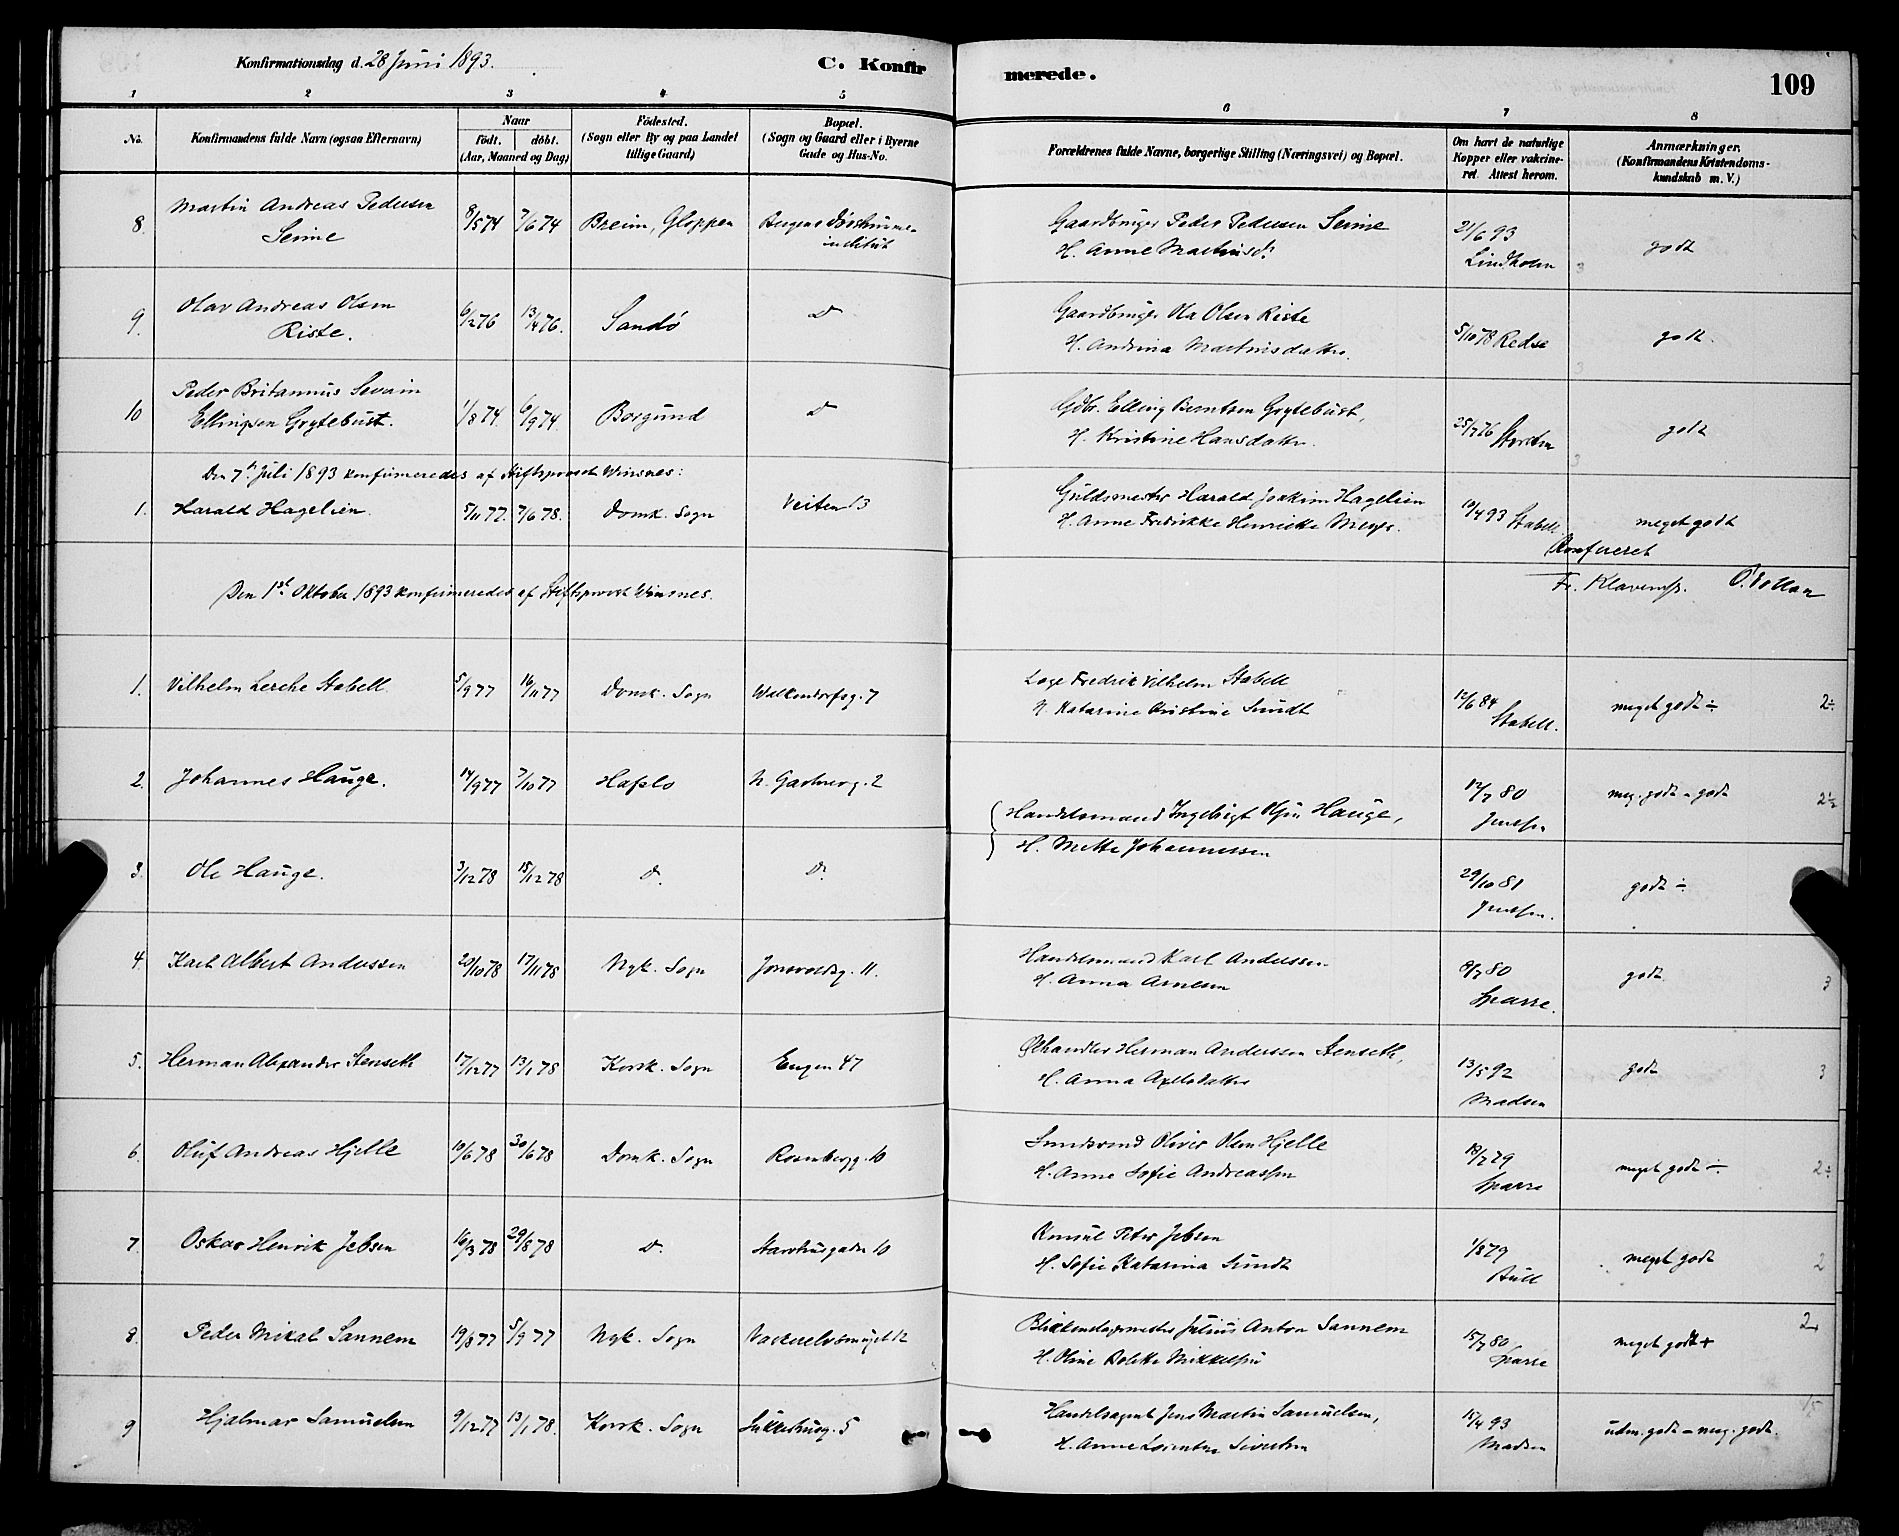 Konfirmationsdag d. 28 Juni 1893.
C. Konfir
merede.
109
1 2 3 4 5 6 7 8
No.
Konfirmandens fulde Navn (ogsaa Efternavn)
Naar
födt. döbt.
(Aar, Maaned og Dag)
Födested.
(Sogn eller By og paa Landet
tillige Gaard)
Bopæl.
(Sogn og Gaard eller i Byerne
Gade og Hus-No.
Forældrenes fulde Navne, borgerlige Stilling (Næringsvei) og Bopæl.
Om havt de naturlige
Kopper eller vakcine-
ret. Attest herom.
Anmærkninger.
(Konfirmandens Kristendoms-
kundskab m. V.)
8. Martin Andreas Pedersen
Seime
8/5 74 7/6 74 Breim, Gloppen Bergens Døvstumme-
institut
Gaardbruger Peder Pedersen Seime
H. Anne Martinsd.
21/6 93
Lindholm
godt 3
9. Olav Andreas Olsen
Riste.
6/12 76 13/4 76. Sandö D
Gaardbruger Ola Olsen Riste
H. Andrina Martinsdatter.
5/10 78 godt. 3
10 Peder Britannus Severin
Ellingsen Grytebust.
1/8 74. 6/9 74. Borgund D
Gdbr. Elling Berntsen Grytebust,
H. Kristine Hansdatter.
25/7 76 godt 3
Den 7de Juli 1893 konfirmeredes af Stiftsprovst Winsnes:
1. Harald Hagelien. 5/11 77. 7/6 78. Domk. Sogn Veiten 13
Guldsmester Harald Joakim Hagelien
H. Anne Fredrikke Henrikke Meyer.
19/4 93 Stabell. meget godt
Konfereret
Fr. Klaveness.
Den 1ste Oktober 1893 konfirmeredes af Stiftsprovst Winsnes.
1. Vilhelm Lerche Stabell. 5/9 77 16/11 77 Domk. Sogn Walkendorfsg. 7
Læge Fredrik Vilhelm Stabell
H. Katarine Kristine Sundt
12/6 84
Stabell.
meget godt ÷ 2÷
2. Johannes Hauge. 14/9 77 7/10 77 Hafslo N. Gartnerg. 2
Handelsmand Ingebrigt Hauge,
H. Mette Johannessen
12/7 80
Jenssen
meg. godt - godt 2½
3. Ole Hauge. 3/12 78 15/12 78 D. D.
29/10 81
Jenssen.
godt ÷
4. Karl Albert Anderssen 20/10 78 17/11 78 Nyk. Sogn Jonsvoldsg. 11.
Handelsmand Karl Anderssen
H. Anna Arnesen
8/7 80
Sparre.
godt 3
5. Herman Alexander Stenseth 17/12 77 13/1 78 Korsk. Sogn Engen 47
Ølhandler Herman Anderssen Stenseth,
H. Anna Axelsdatter
13/5 92
Madsen
godt 3
6. Oluf Andreas Hjelle 10/6 78 30/6 78 Domk. Sogn Rosenbergg. 10
Oliver Olsen Hjelle
H. Anne Sofie Andreassen
18/7 79
Sparre
meget godt ÷ 2÷
7. Oskar Henrik Jebsen 16/3 78 29/8 78 D. Starvhusgaden 10
Konsul Peter Jebsen
H. Sofie Katarina Sundt
1/8 79
Bull
meget godt 2
8. Peder Mikal Sannem 19/8 77 5/9 77 Nyk. Sogn Vaskerelvsmuget 12
Blikkenslagermester Julius Anton Sannem
H. Oline Bolette Mikkelsen
15/7 80
Sparre
meget godt + 2+
9 Hjalmar Samuelsen 9/12 77 13/1 78. Korsk. Sogn Sukkerhusg. 5
Handelsagent Jens Martin Samuelsen,
H. Anne Sivertsen
15/4 93
Madsen
udm. godt - meg. godt.